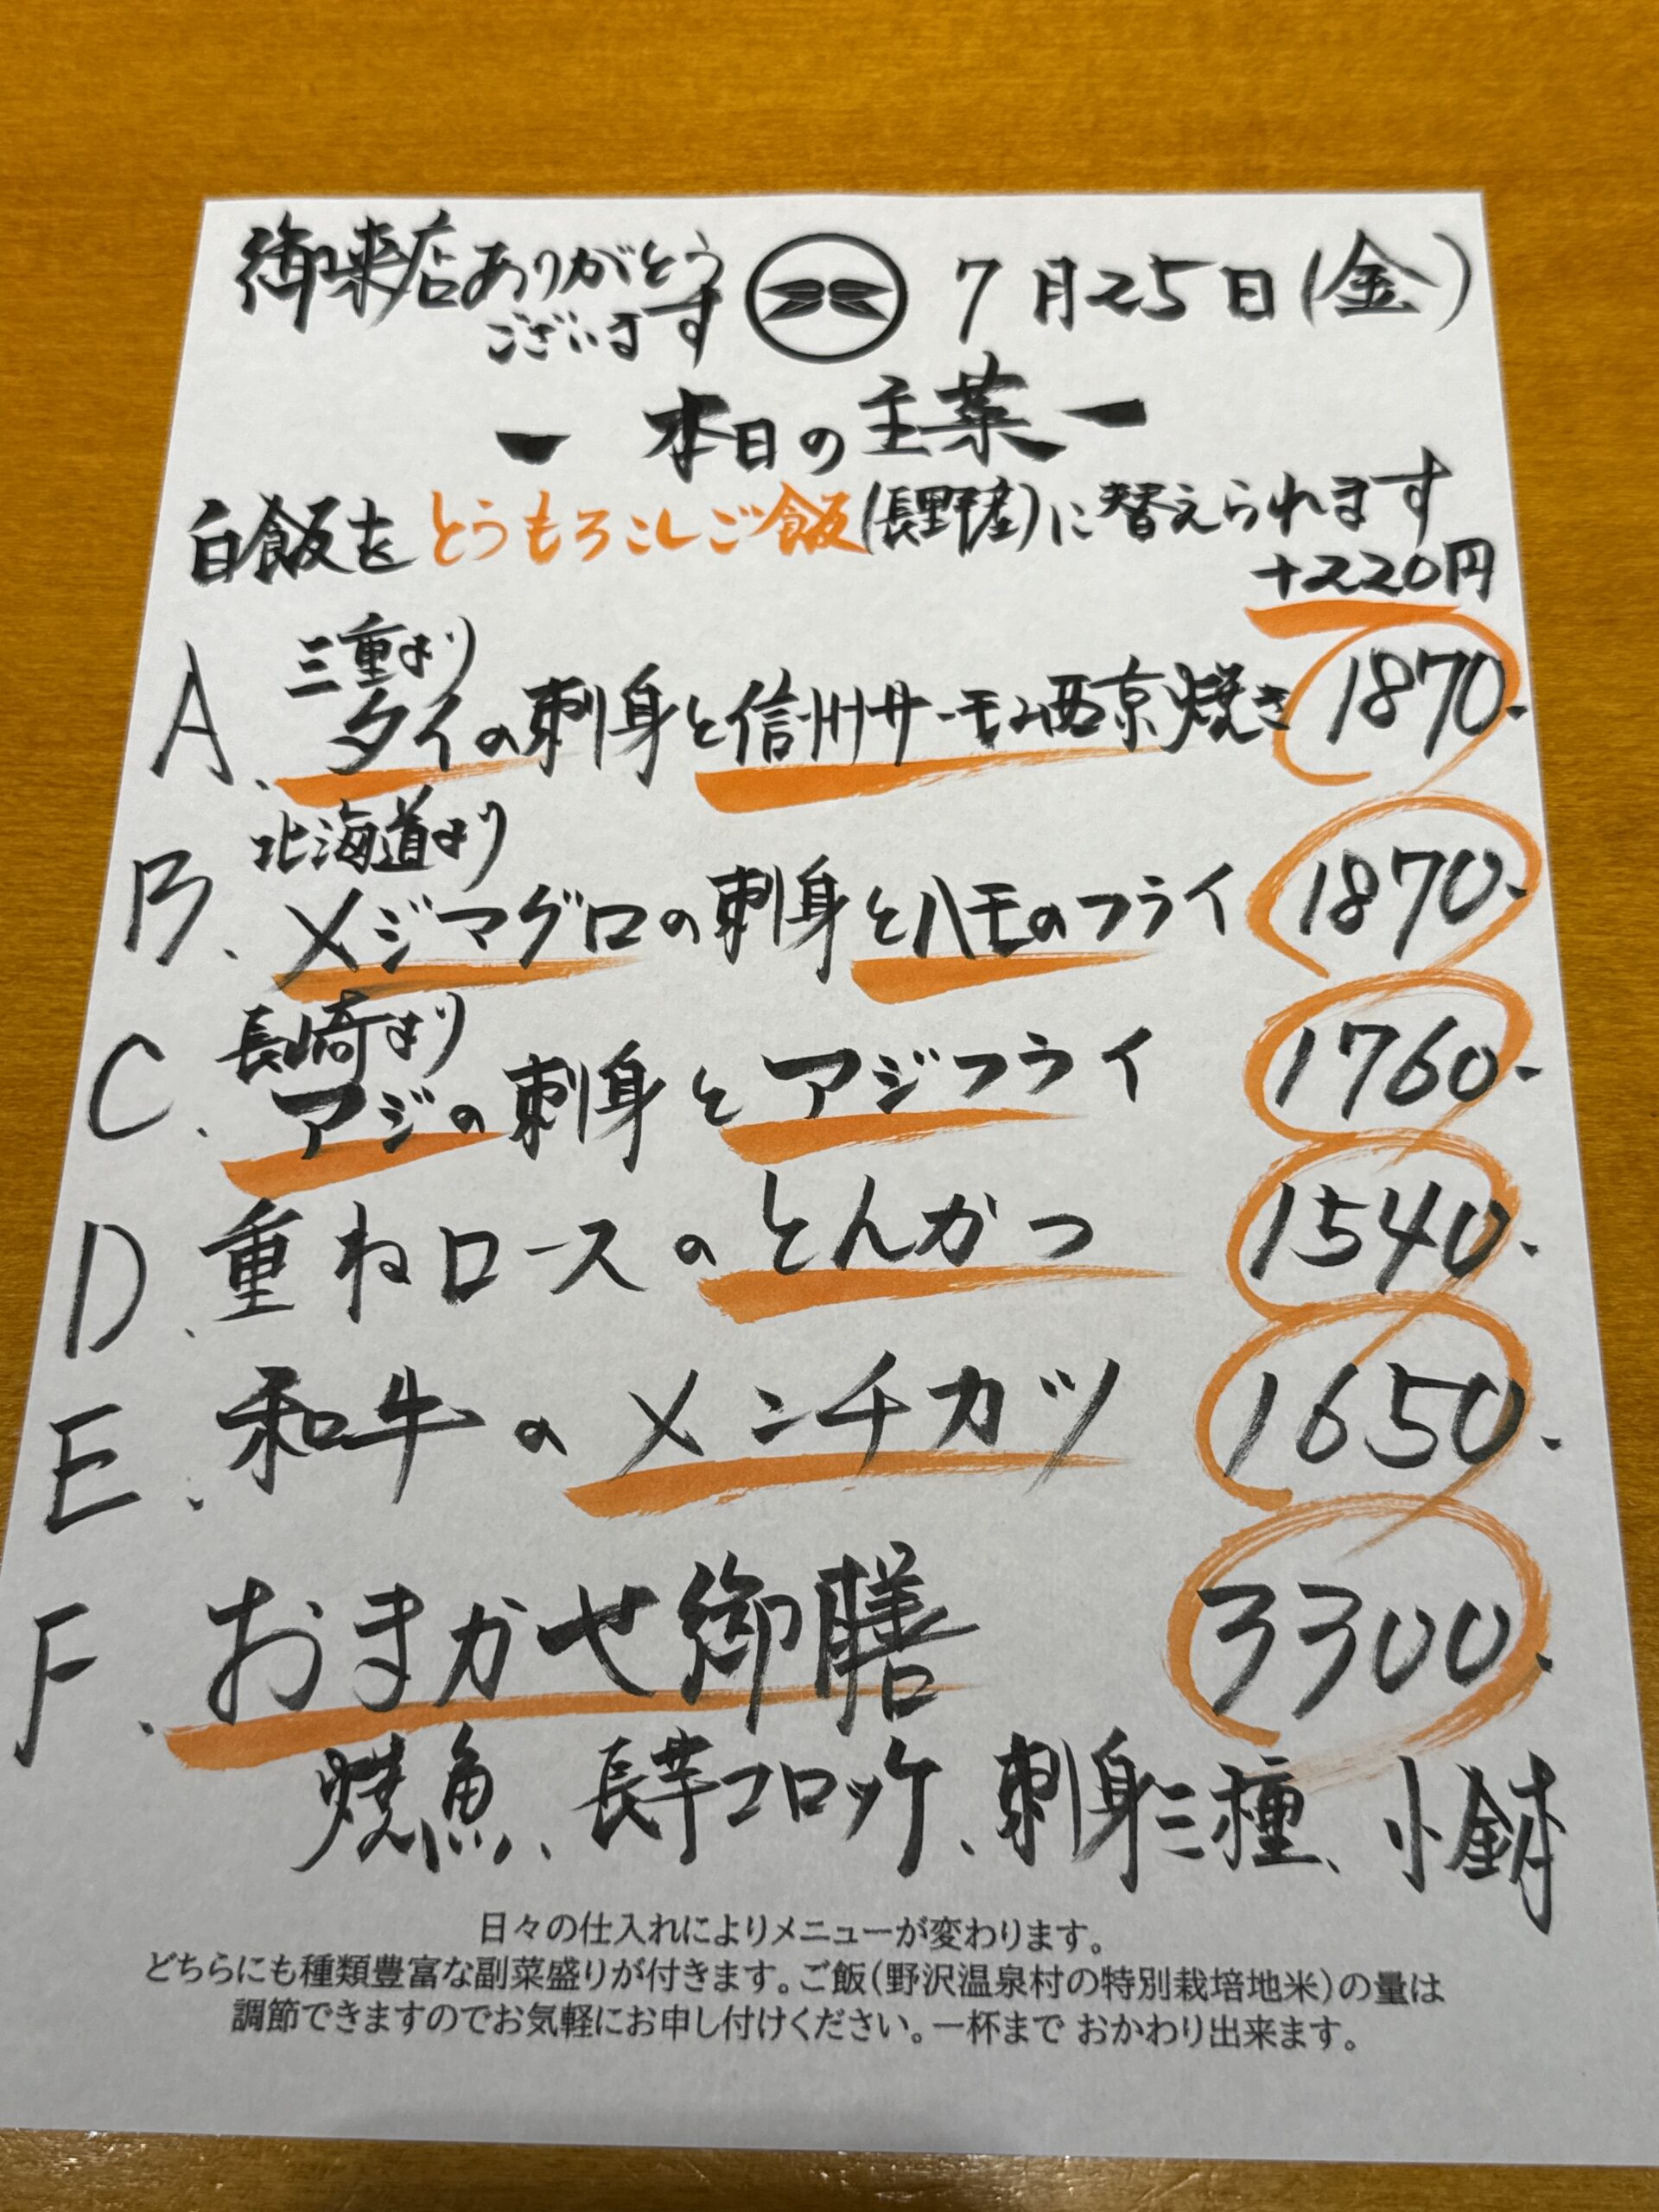 御来店ありがとう
ございます
7月25日(金)
ー 本日の主菜 ー
白飯をとうもろこしご飯(長野産)に替えられます
+220円
三重より
A. タイの刺身と信州サーモン西京焼き 1870.
北海道より
B. メジマグロの刺身とハモのフライ 1870.
長崎より
C. アジの刺身とアジフライ 1760.
D. 重ねロースのとんかつ 1540.
E. 和牛のメンチカツ 1650.
F. おまかせ御膳 3300.
焼魚、長芋コロッケ、刺身三種、小鉢
日々の仕入れによりメニューが変わります。
どちらにも種類豊富な副菜盛りが付きます。ご飯(野沢温泉村の特別栽培地米)の量は
調節できますのでお気軽にお申し付けください。一杯まで おかわり出来ます。